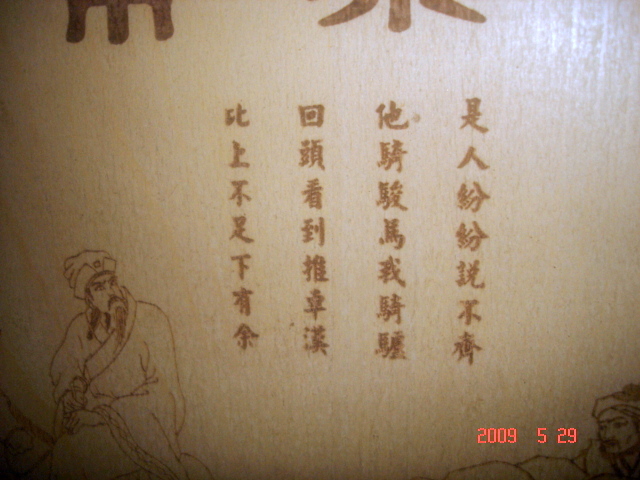 是人紛紛説不齊
他騎駿馬我騎驢
回頭看到推車漢
比上不足下有余
2009 5 29